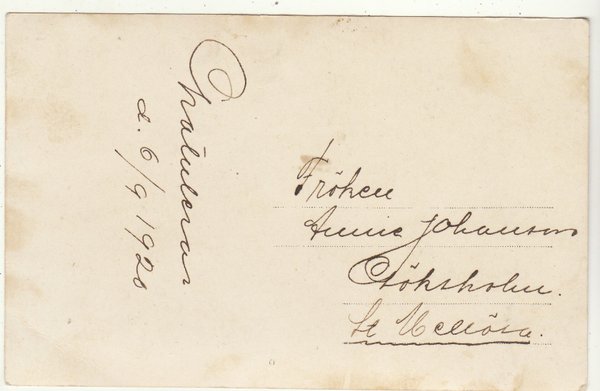 Gratulerar
d. 6/9 1920
Fröken
Annie Johanson
Göksholm.
St Mellösa.